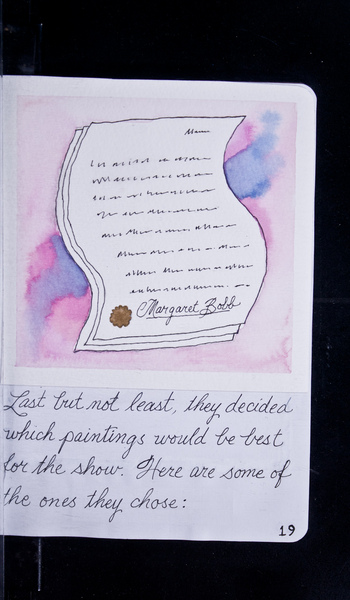 Margaret Bobb
Last but not least, they decided
which paintings would be best
for the show. Here are some of
the ones they chose:
19